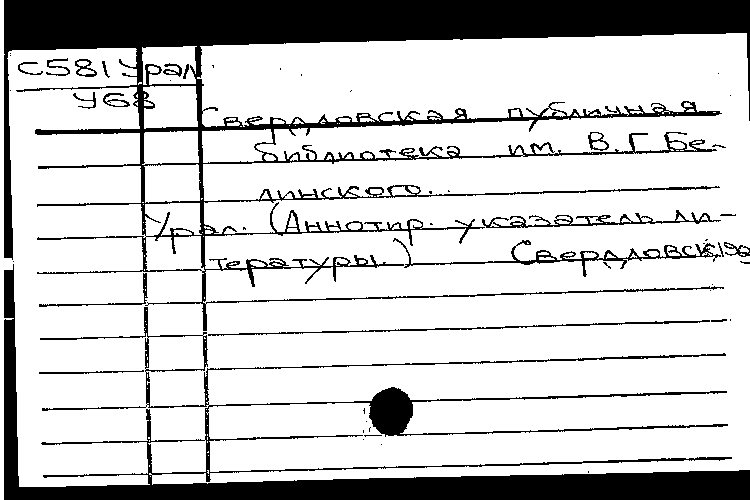 С581 Урал
У68
Свердловская публичная
библиотека им. В.Г Бе-
линского.
Урал. (Аннотир. указатель ли-
тературы.) Свердловск,